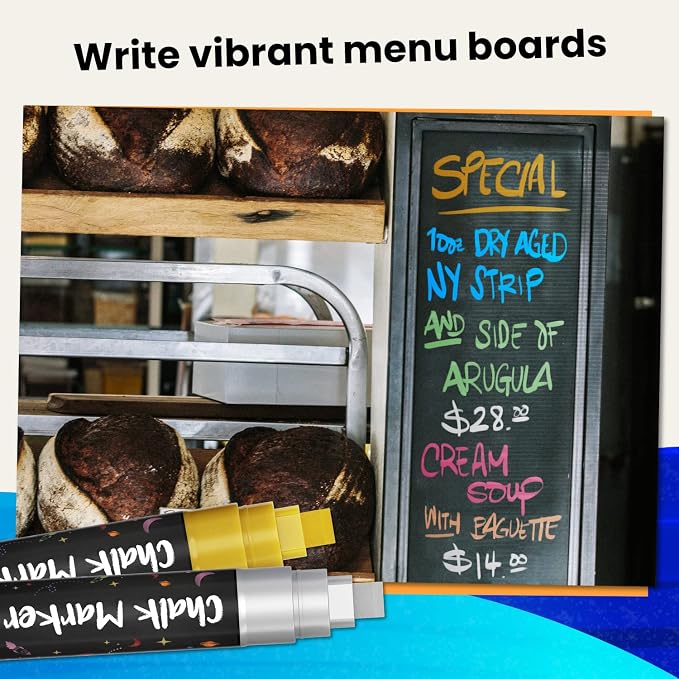 Write vibrant menu boards
SPECIAL
10oz DRY AGED
NY STRIP
AND SIDE OF
ARUGULA
$28.00
CREAM
SOUP
WITH BAGUETTE
$14.00
Chalk Mark
Chalk Marker